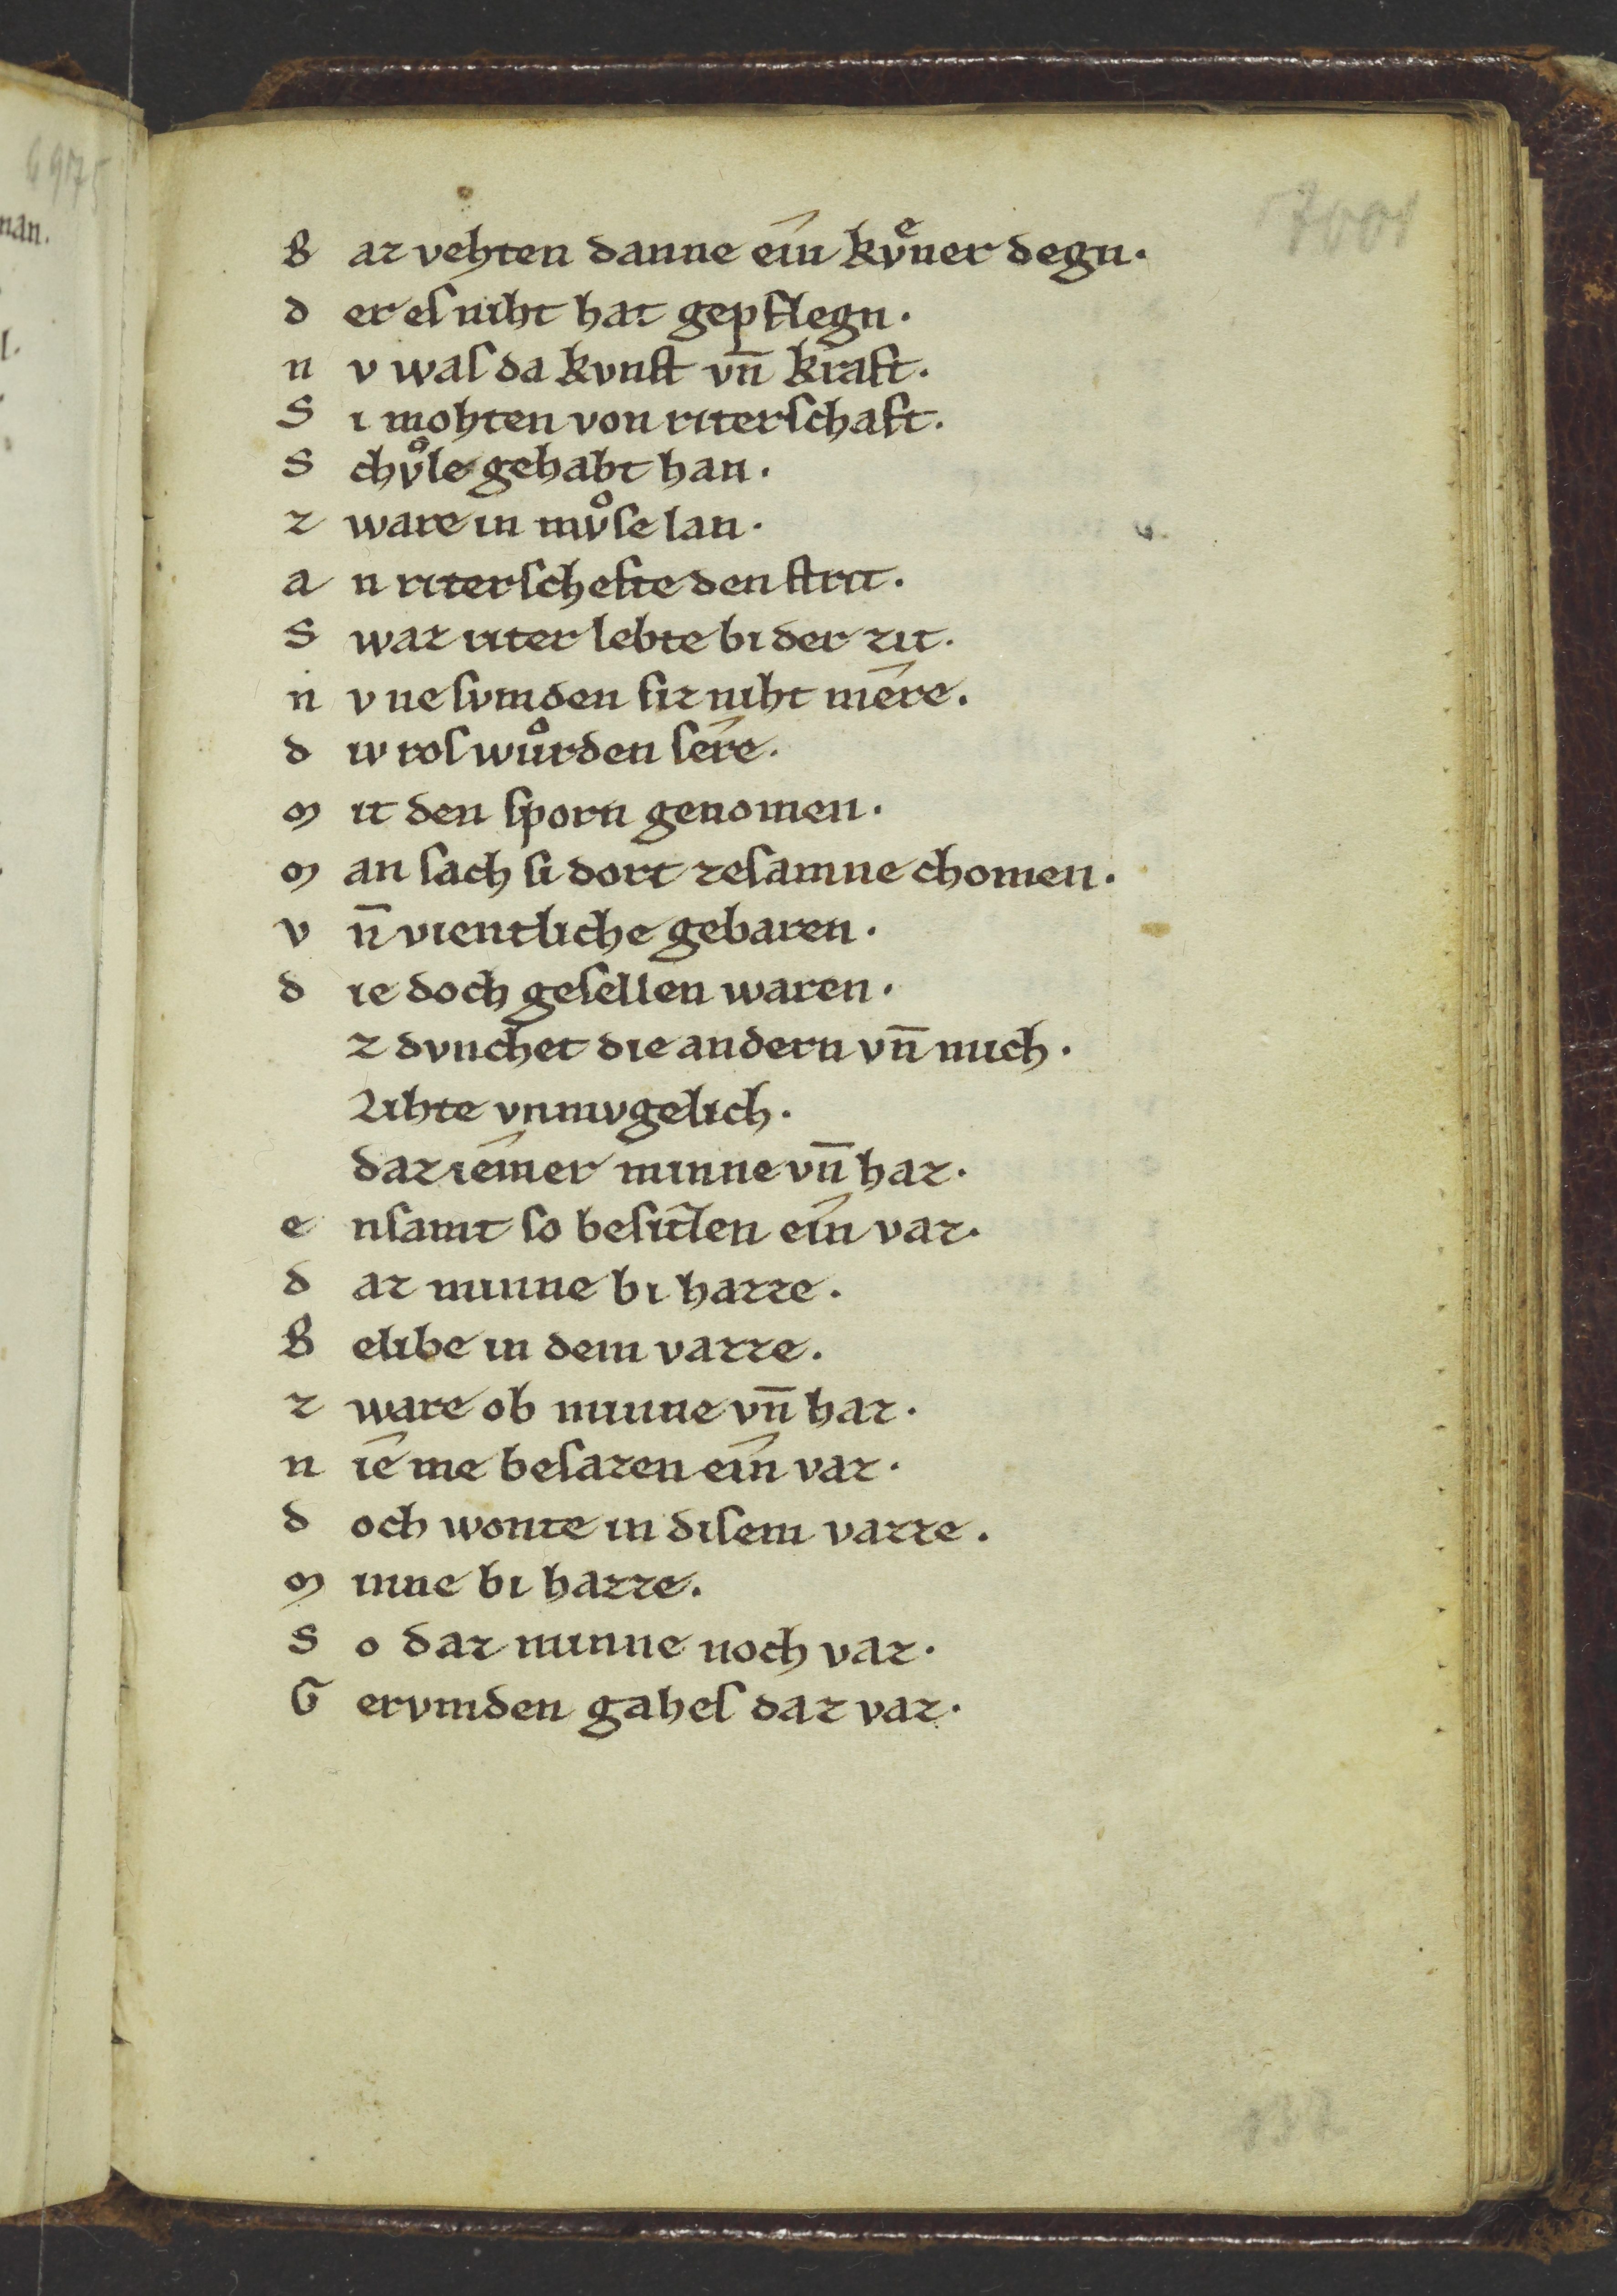 6975
man.
l.
7001
B az vehten danne ein kvͤner degn.
d er eſ niht hat gepflegn.
n v waſ da kvnſt vn̄ kraft.
S i mohten von riterſchaft.
S chvͦle gehabt han.
z ware in mvͦſe lan.
a n riterſchefte den ſtrit.
S waz riter lebte bi der zit.
n v ne ſvmden ſiz niht mêre.
d iv roſ wuͦrden ſêre.
m it den ſporn genomen.
m an ſach ſi dort zeſamne chomen.
v n̄ vientliche gebaren.
d ie doch geſellen waren.
z dvnchet die andern vn̄ mich.
Lihte vnmvgelich.
daz iêmer minne vn̄ haz.
e nſamt ſo beſitzen ein vaz.
d az minne bi hazze.
B elibe in dem vazze.
z ware ob minne vn̄ haz.
n iê me beſazen ein vaz.
d och wonte in diſem vazze.
m inne bi hazze.
S o daz minne noch vaz.
G ervmden gaheſ daz vaz.
137